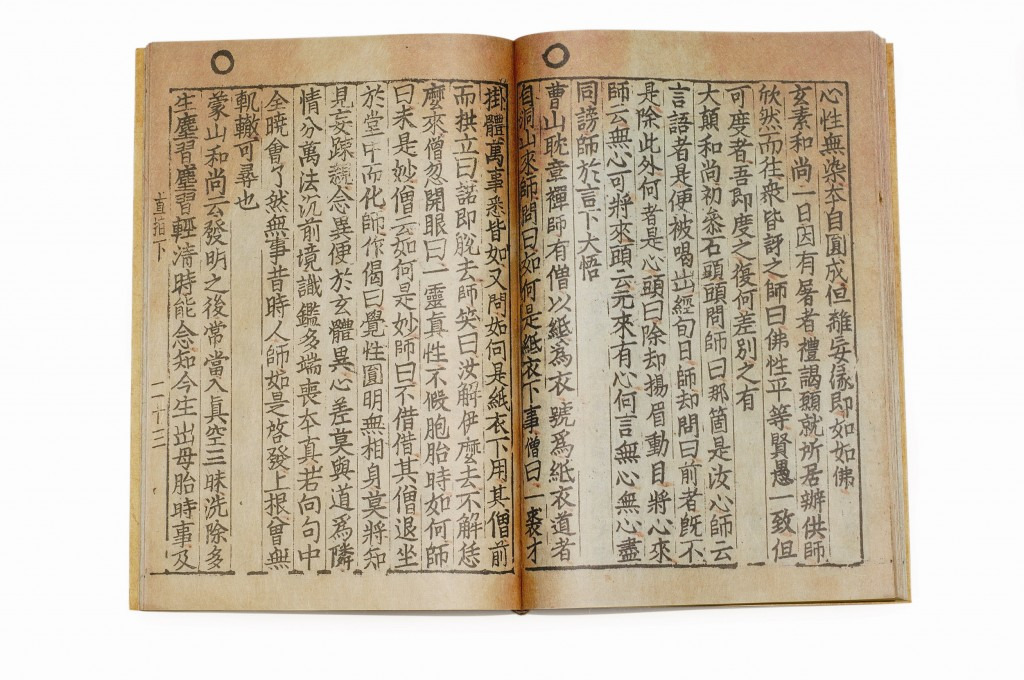 心性無染本自圓成但離妄緣即如如佛
玄素和尚一日因有屠者禮謁願就所居辦供師
欣然而往衆皆訝之師曰佛性平等賢愚一致但
可度者吾即度之復何差別之有
大顛和尚初叅石頭頭問師曰那箇是汝心師云
言語者是便被喝出經旬日師却問曰前者旣不
是除此外何者是心頭曰除却揚眉動目將心來
師云無心可將來頭云元來有心何言無心無心盡
同謗師於言下大悟
曹山耽章禪師有僧以紙爲衣號爲紙衣道者
自洞山來師問曰如何是紙衣下事僧曰一裘才
掛體萬事悉皆如又問如何是紙衣下用其僧前
而拱立曰諾即脫去師笑曰汝解伊麽去不解恁
麽來僧忽開眼曰一靈眞性不假胞胎時如何師
曰未是妙僧云如何是妙師曰不借借其僧退坐
於堂中而化師作偈曰覺性圓明無相身莫將知
見妄踈親念異便於玄體異心差莫與道爲隣
情分萬法沉前境識鑑多端喪本真若句句中
全曉會了然無事昔時人師如是啓發上根曾無
軌轍可尋也
蒙山和尚云發明之後常當入眞空三昧洗除多
生塵習塵習輕清時能念知今生出母胎時事及
直指下
二十三